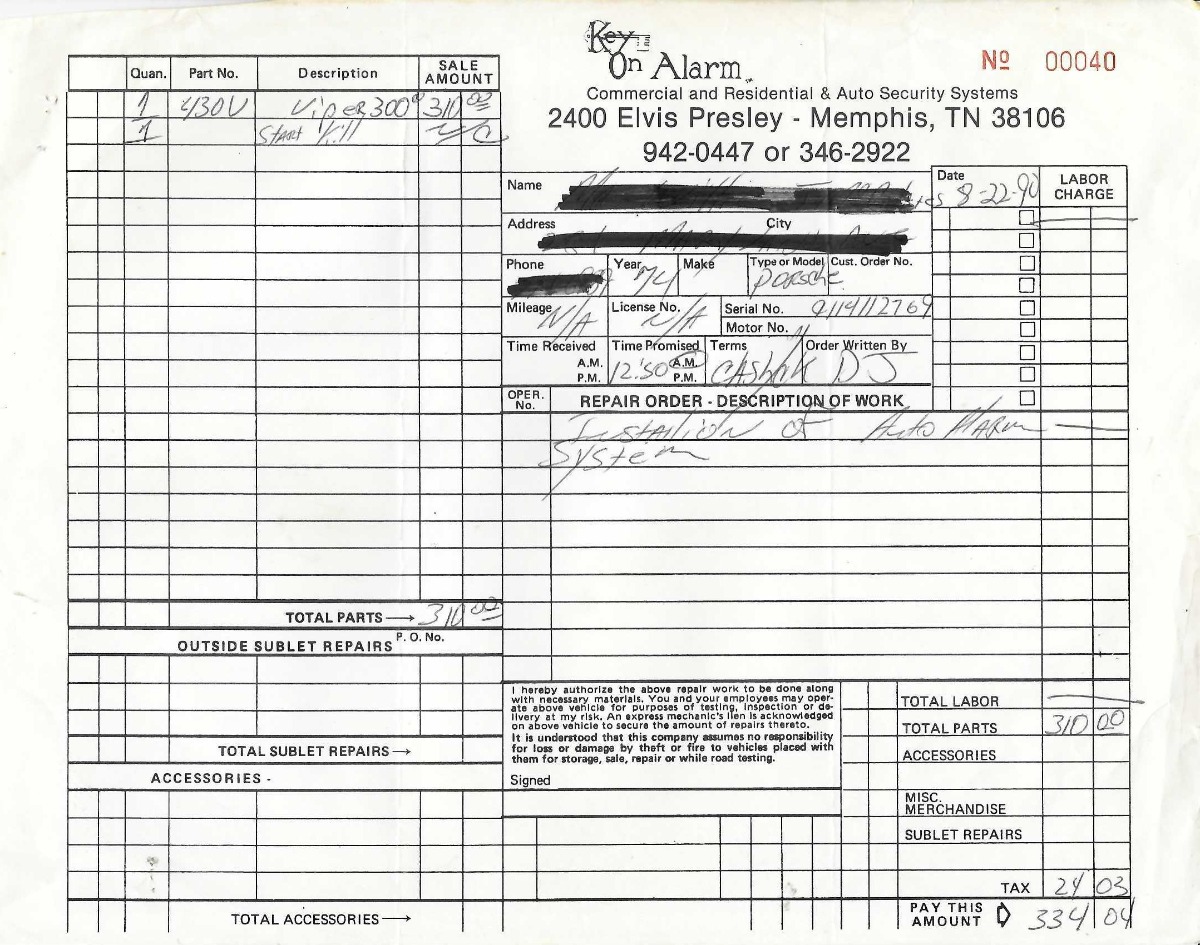 Key On Alarm
Commercial and Residential & Auto Security Systems
2400 Elvis Presley - Memphis, TN 38106
942-0447 or 346-2922
Nº 00040
Quan. Part No. Description SALE AMOUNT
1 430V Viper 300 310 00
1 Start Kill N/C
TOTAL PARTS → 310 00
OUTSIDE SUBLET REPAIRS P. O. No.
TOTAL SUBLET REPAIRS →
ACCESSORIES -
TOTAL ACCESSORIES →
Name
Date 8-22-90
LABOR CHARGE
Address City
Phone Year 74 Make Type or Model Porsche Cust. Order No.
Mileage N/A License No. N/A Serial No. 9114112769
Motor No.
Time Received A.M. P.M. Time Promised 12:50 A.M. P.M. Terms Order Written By DJ
OPER. No. REPAIR ORDER - DESCRIPTION OF WORK
Installion of Auto Alarm
System
I hereby authorize the above repair work to be done along
with necessary materials. You and your employees may oper-
ate above vehicle for purposes of testing, inspection or de-
livery at my risk. An express mechanic's lien is acknowledged
on above vehicle to secure the amount of repairs thereto.
It is understood that this company assumes no responsibility
for loss or damage by theft or fire to vehicles placed with
them for storage, sale, repair or while road testing.
Signed
TOTAL LABOR
TOTAL PARTS 310 00
ACCESSORIES
MISC. MERCHANDISE
SUBLET REPAIRS
TAX 24 03
PAY THIS AMOUNT 334 04